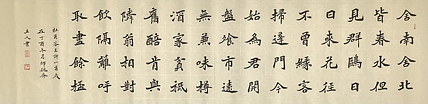 舍南舍北
皆春水但
見群鷗日
日來花徑
不曾緣客
掃蓬門今
始為君開
盤飧市遠
無兼味樽
酒家貧秪
舊醅肯與
鄰翁相對
飲隔籬呼
取盡餘杯